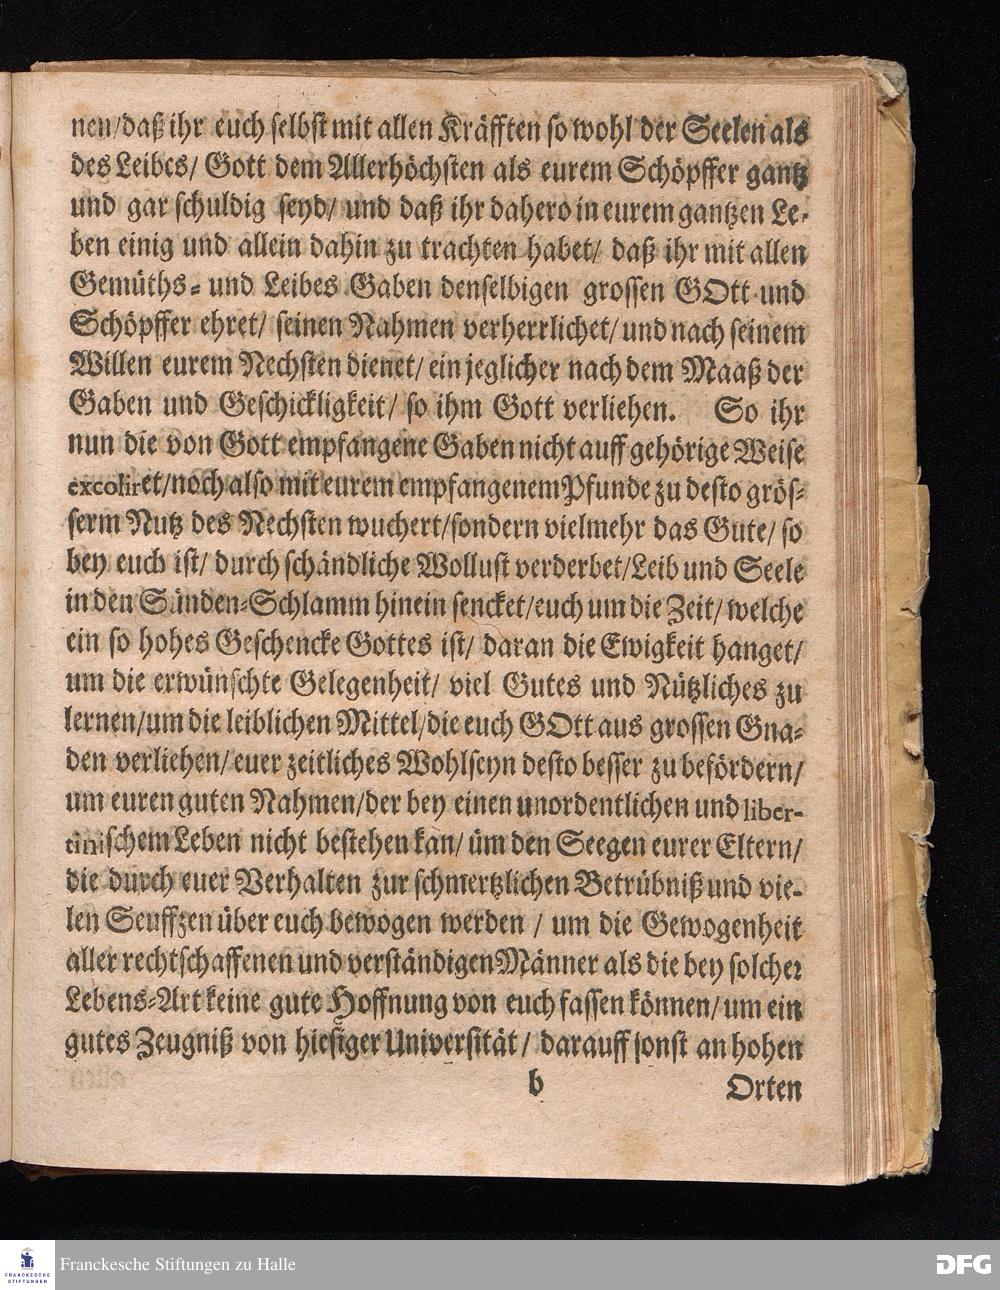 nen/daß ihr euch selbst mit allen Kräfften so wohl der Seelen als
des Leibes/ Gott dem Allerhöchsten als eurem Schöpffer gantz
und gar schuldig seyd/ und daß ihr dahero in eurem gantzen Le-
ben einig und allein dahin zu trachten habet/ daß ihr mit allen
Gemüths- und Leibes Gaben denselbigen grossen GOtt und
Schöpffer ehret/ seinen Nahmen verherrlichet/ und nach seinem
Willen eurem Nechsten dienet/ ein jeglicher nach dem Maaß der
Gaben und Geschickligkeit/ so ihm Gott verliehen. So ihr
nun die von Gott empfangene Gaben nicht auff gehörige Weise
excoliret/noch also mit eurem empfangenem Pfunde zu desto grös-
serm Nutz des Nechsten wuchert/sondern vielmehr das Gute/ so
bey euch ist/ durch schändliche Wollust verderbet/Leib und Seele
in den Sünden-Schlamm hinein sencket/euch um die Zeit/ welche
ein so hohes Geschencke Gottes ist/ daran die Ewigkeit hanget/
um die erwünschte Gelegenheit/ viel Gutes und Nützliches zu
lernen/um die leiblichen Mittel/die euch GOtt aus grossen Gna-
den verliehen/euer zeitliches Wohlseyn desto besser zu befördern/
um euren guten Nahmen/der bey einen unordentlichen und liber-
tinischem Leben nicht bestehen kan/ üm den Seegen eurer Eltern/
die durch euer Verhalten zur schmertzlichen Betrübniß und vie-
len Seuffzen über euch bewogen werden / um die Gewogenheit
aller rechtschaffenen und verständigen Männer als die bey solcher
Lebens-Art keine gute Hoffnung von euch fassen können/ um ein
gutes Zeugniß von hiesiger Universität/ darauff sonst an hohen
b Orten
FRANCKESCHE STIFTUNGEN
Franckesche Stiftungen zu Halle
DFG